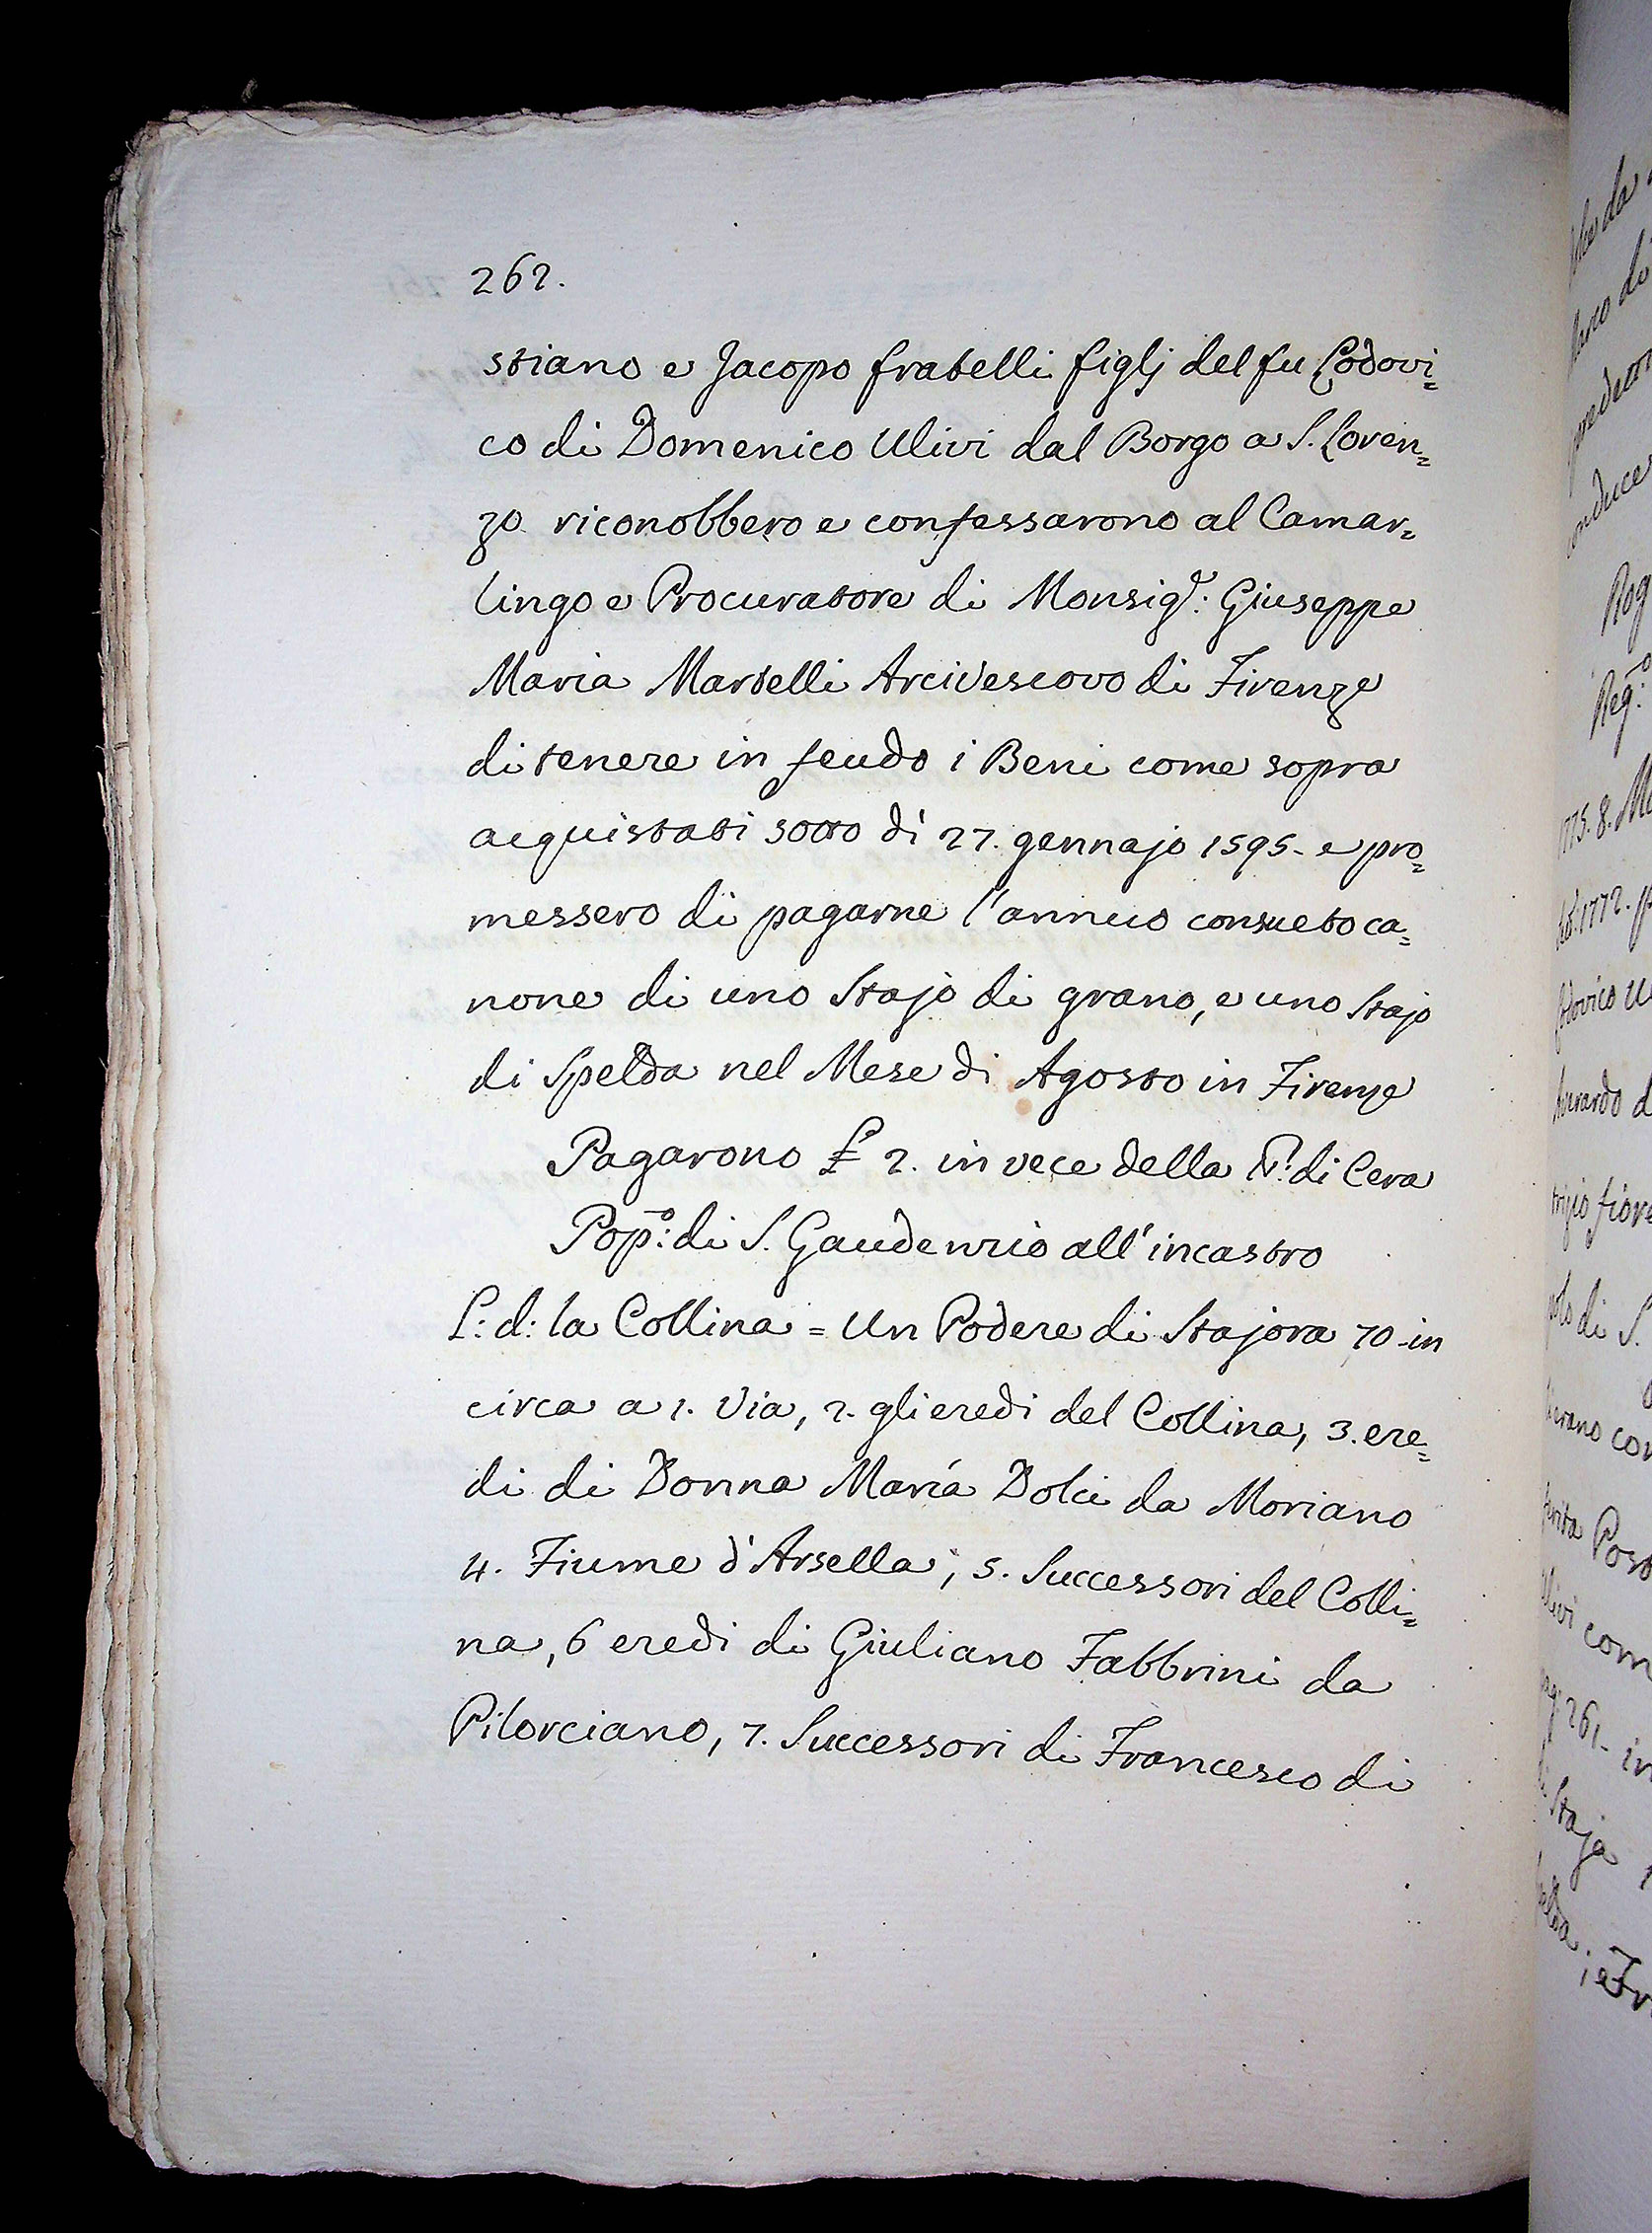 262.
stiano e Jacopo fratelli figlj del fu Lodovi=
co di Domenico Ulivi dal Borgo a S. Loren=
zo riconobbero e confessarono al Camar=
lingo e Procuratore di Monsig.r: Giuseppe
Maria Martelli Arcivescovo di Firenze
di tenere in feudo i Beni come sopra
acquistati sotto dì 27. gennajo 1595. e pro=
messero di pagarne l'annuo consueto ca=
none di uno Stajo di grano, e uno Stajo
di Spelda nel Mese di Agosto in Firenze
Pagarono £ 2. in vece della di Cera
Pop.o: di S. Gaudenzio all'incastro
L: d: la Collina = Un Podere di Stajora 70 in
circa a 1. Via, 2. gli eredi del Collina, 3. ere=
di di Donna Maria Dolci da Moriano
4. Fiume d'Arsella, 5. Successori del Colli=
na, 6 eredi di Giuliano Fabbrini da
Pilorciano, 7. Successori di Francesco di